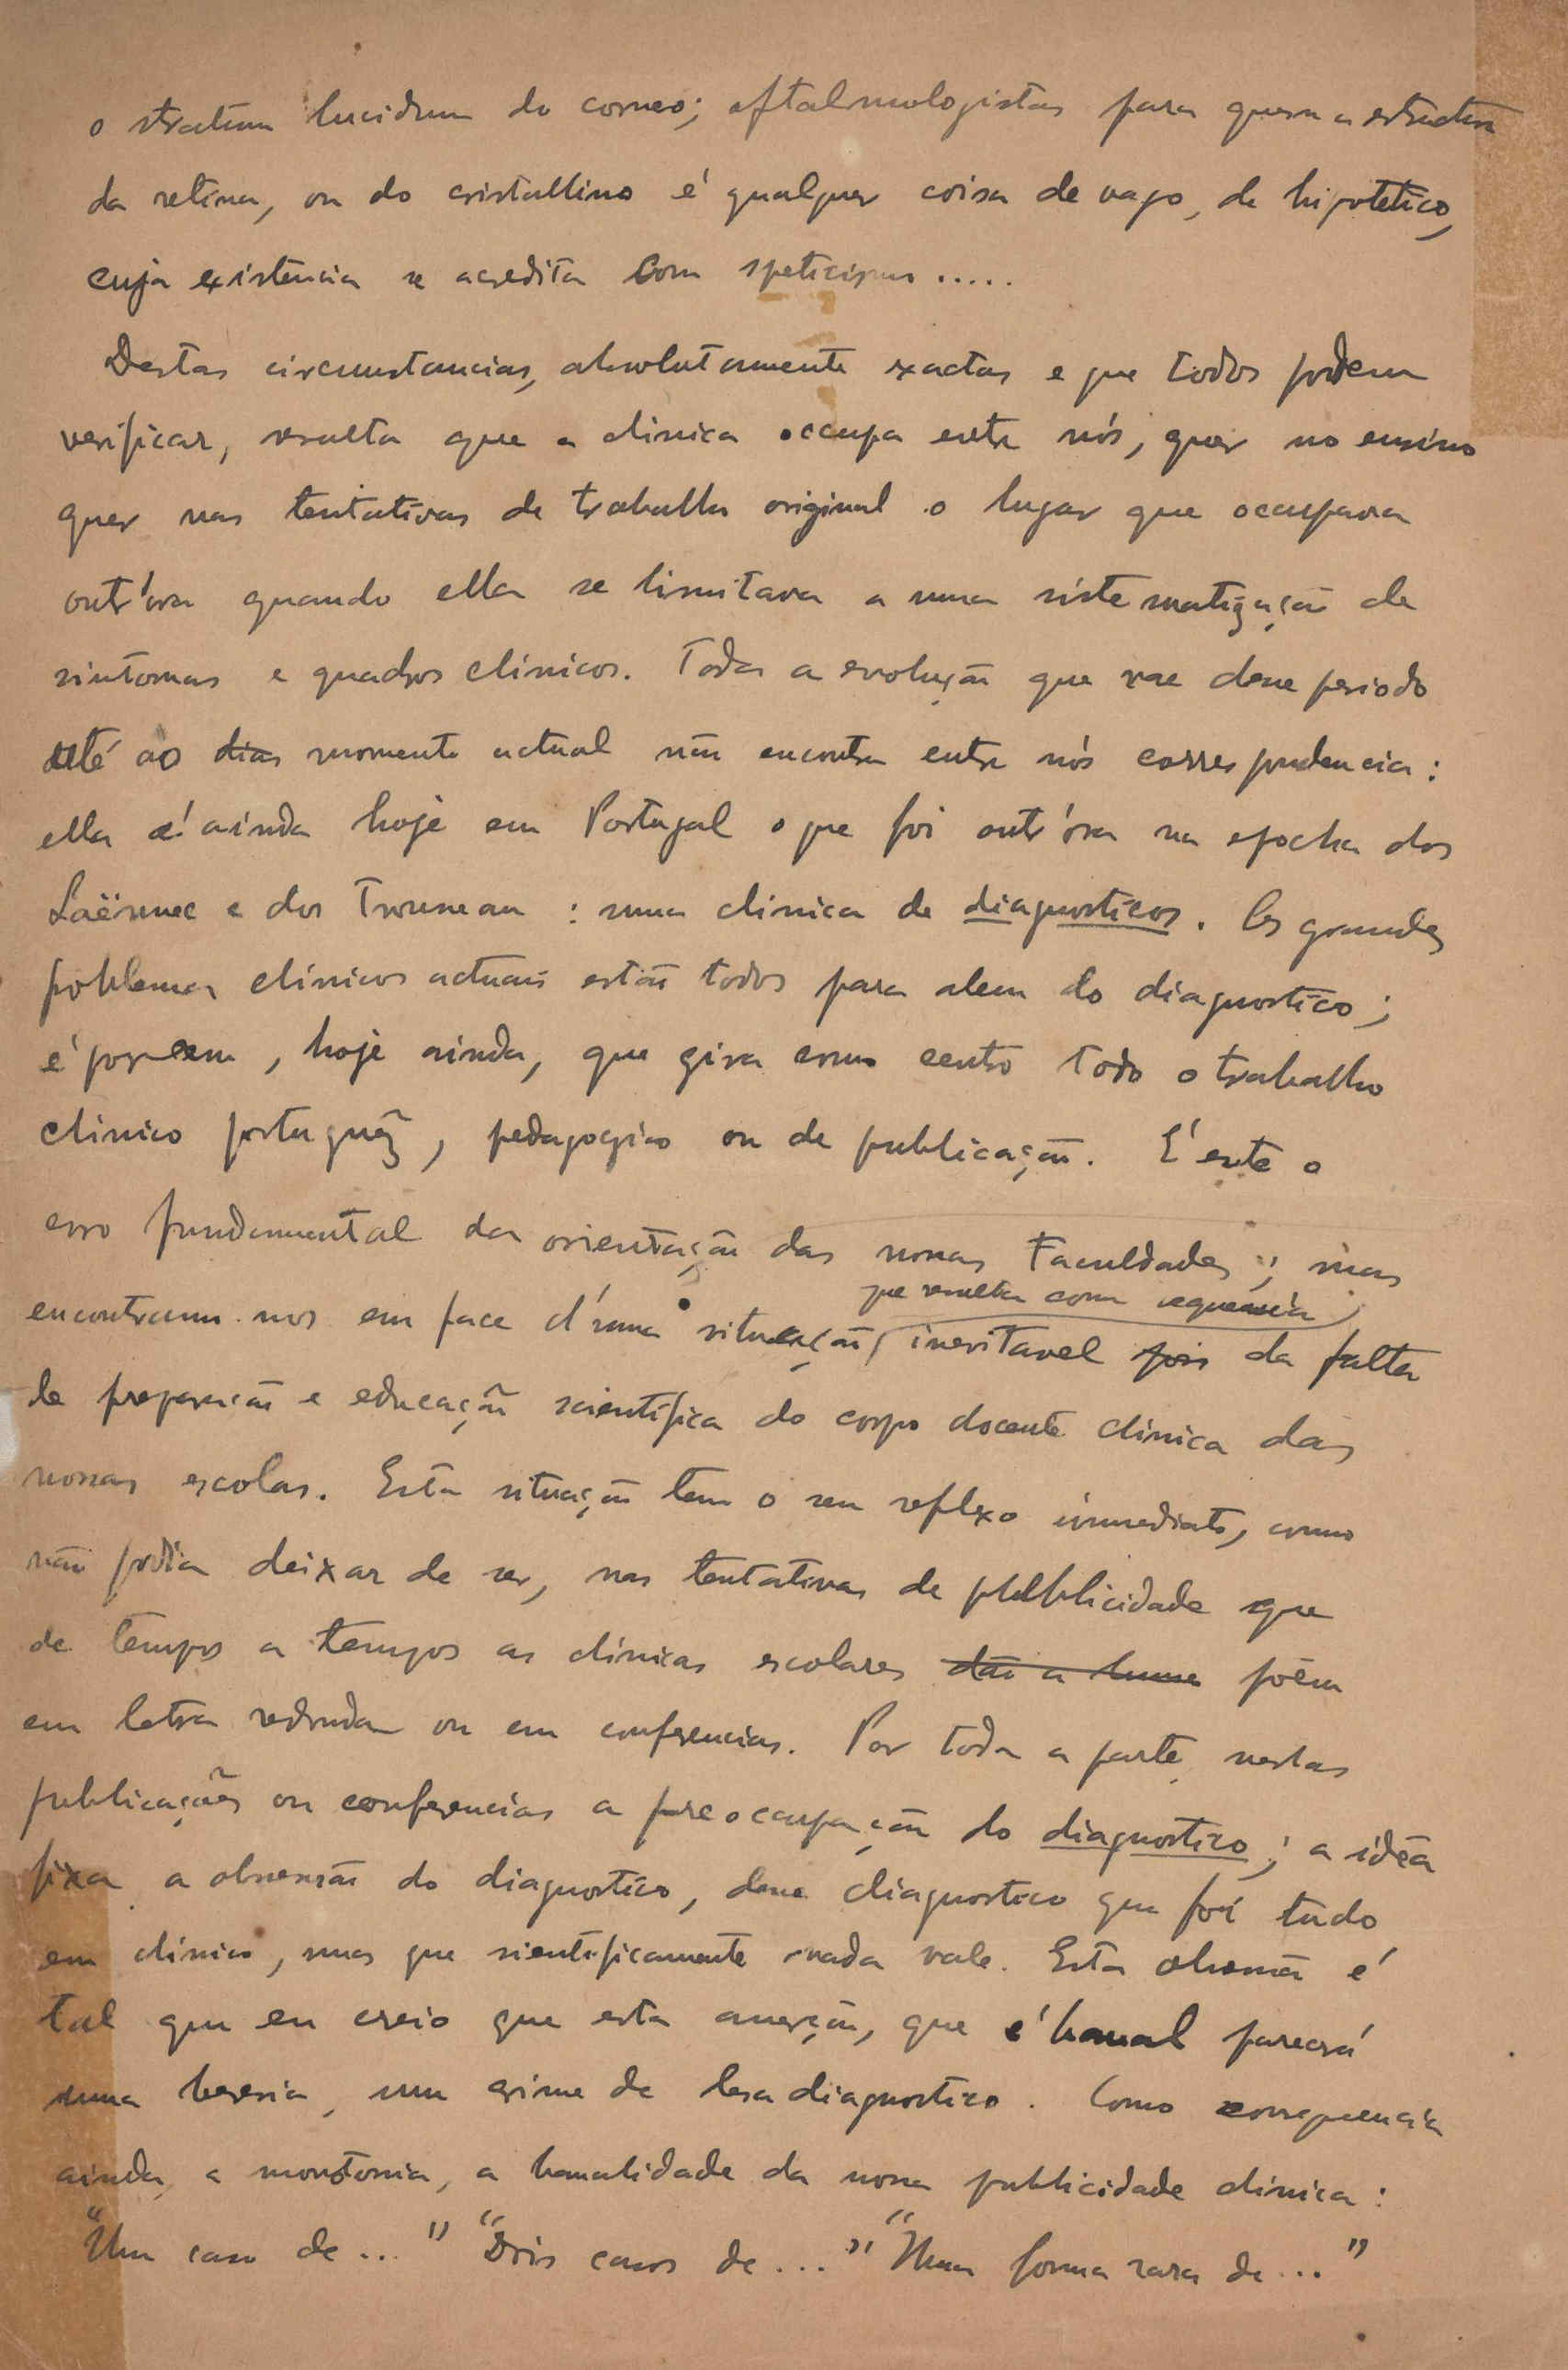 o stratum lucidum do corneo; oftalmologistas para quem a estructura
da retina, ou do cristallino é qualquer coisa de vago, de hipotetico,
cuja existencia se acredita com speticismo .....
Destas circumstancias, absolutamente exactas e que todos podem
verificar, resulta que a clinica occupa entre nós, quer no ensino
quer nas tentativas de trabalho original o lugar que occupava
outr'ora quando ella se limitava a uma sistematização de
sintomas e quadros clinicos. Toda a evolução que vae desse periodo
até ao dias momento actual não encontra entre nós correspondencia:
ella é ainda hoje em Portugal o que foi outr'ora na epocha dos
Laënnec e dos Trousseau : uma clinica de diagnosticos. Os grandes
problemas clinicos actuais estão todos para alem do diagnostico;
é porem, hoje ainda, que gira como centro todo o trabalho
clinico português, pedagogico ou de publicação. É este o
erro fundamental da orientação das nossas Faculdades; mas
que resulta como sequencia
encontramo-nos em face d'uma situação, inevitavel pois da falta
de preparação e educação scientifica do corpo docente clinica das
nossas escolas. Esta situação tem o seu reflexo immediato, como
não podia deixar de ser, nas tentativas de publicidade que
de tempos a tempos as clinicas escolares dão a lume põem
em letra redonda ou em conferencias. Por toda a parte nestas
publicações ou conferencias a preocupação do diagnostico; a idéa
fixa a obsessão do diagnostico, desse diagnostico que foi tudo
em clinica, mas que sientificamente nada vale. Esta obsessão é
tal que eu creio que esta asserção, que é banal parecerá
uma heresia, um crime de lesa diagnostico. Como consequencia
ainda, a monotonia, a banalidade da nossa publicidade clinica:
"Um caso de ..." "Dois casos de ..." "Uma forma rara de ..."